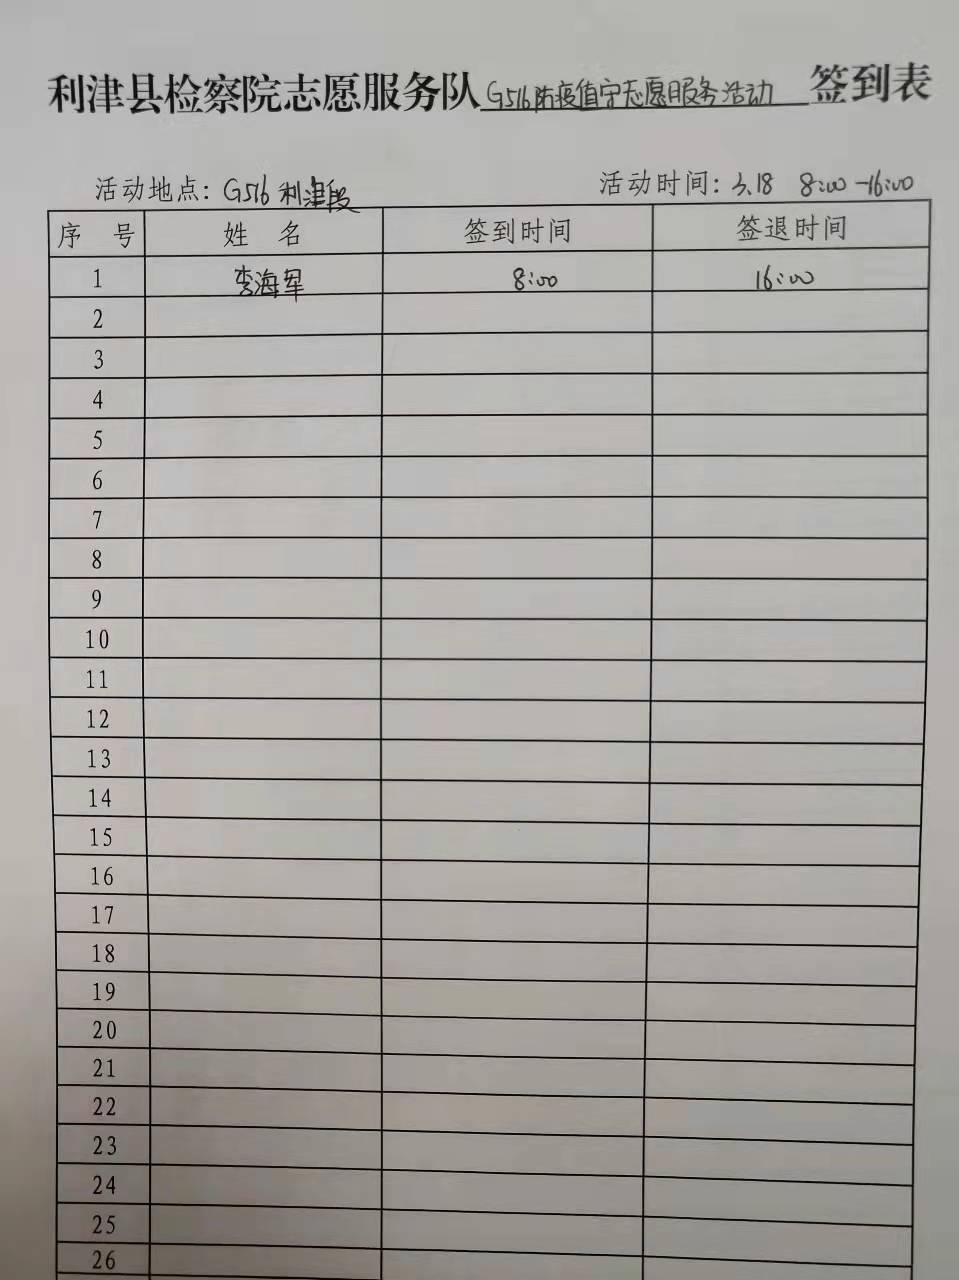 利津县检察院志愿服务队G516防疫值守志愿服务活动 签到表
活动地点：G516 利津段 活动时间：3.18 8:00-16:00
序 号 姓 名 签到时间 签退时间
1 李海军 8:00 16:00
2
3
4
5
6
7
8
9
10
11
12
13
14
15
16
17
18
19
20
21
22
23
24
25
26